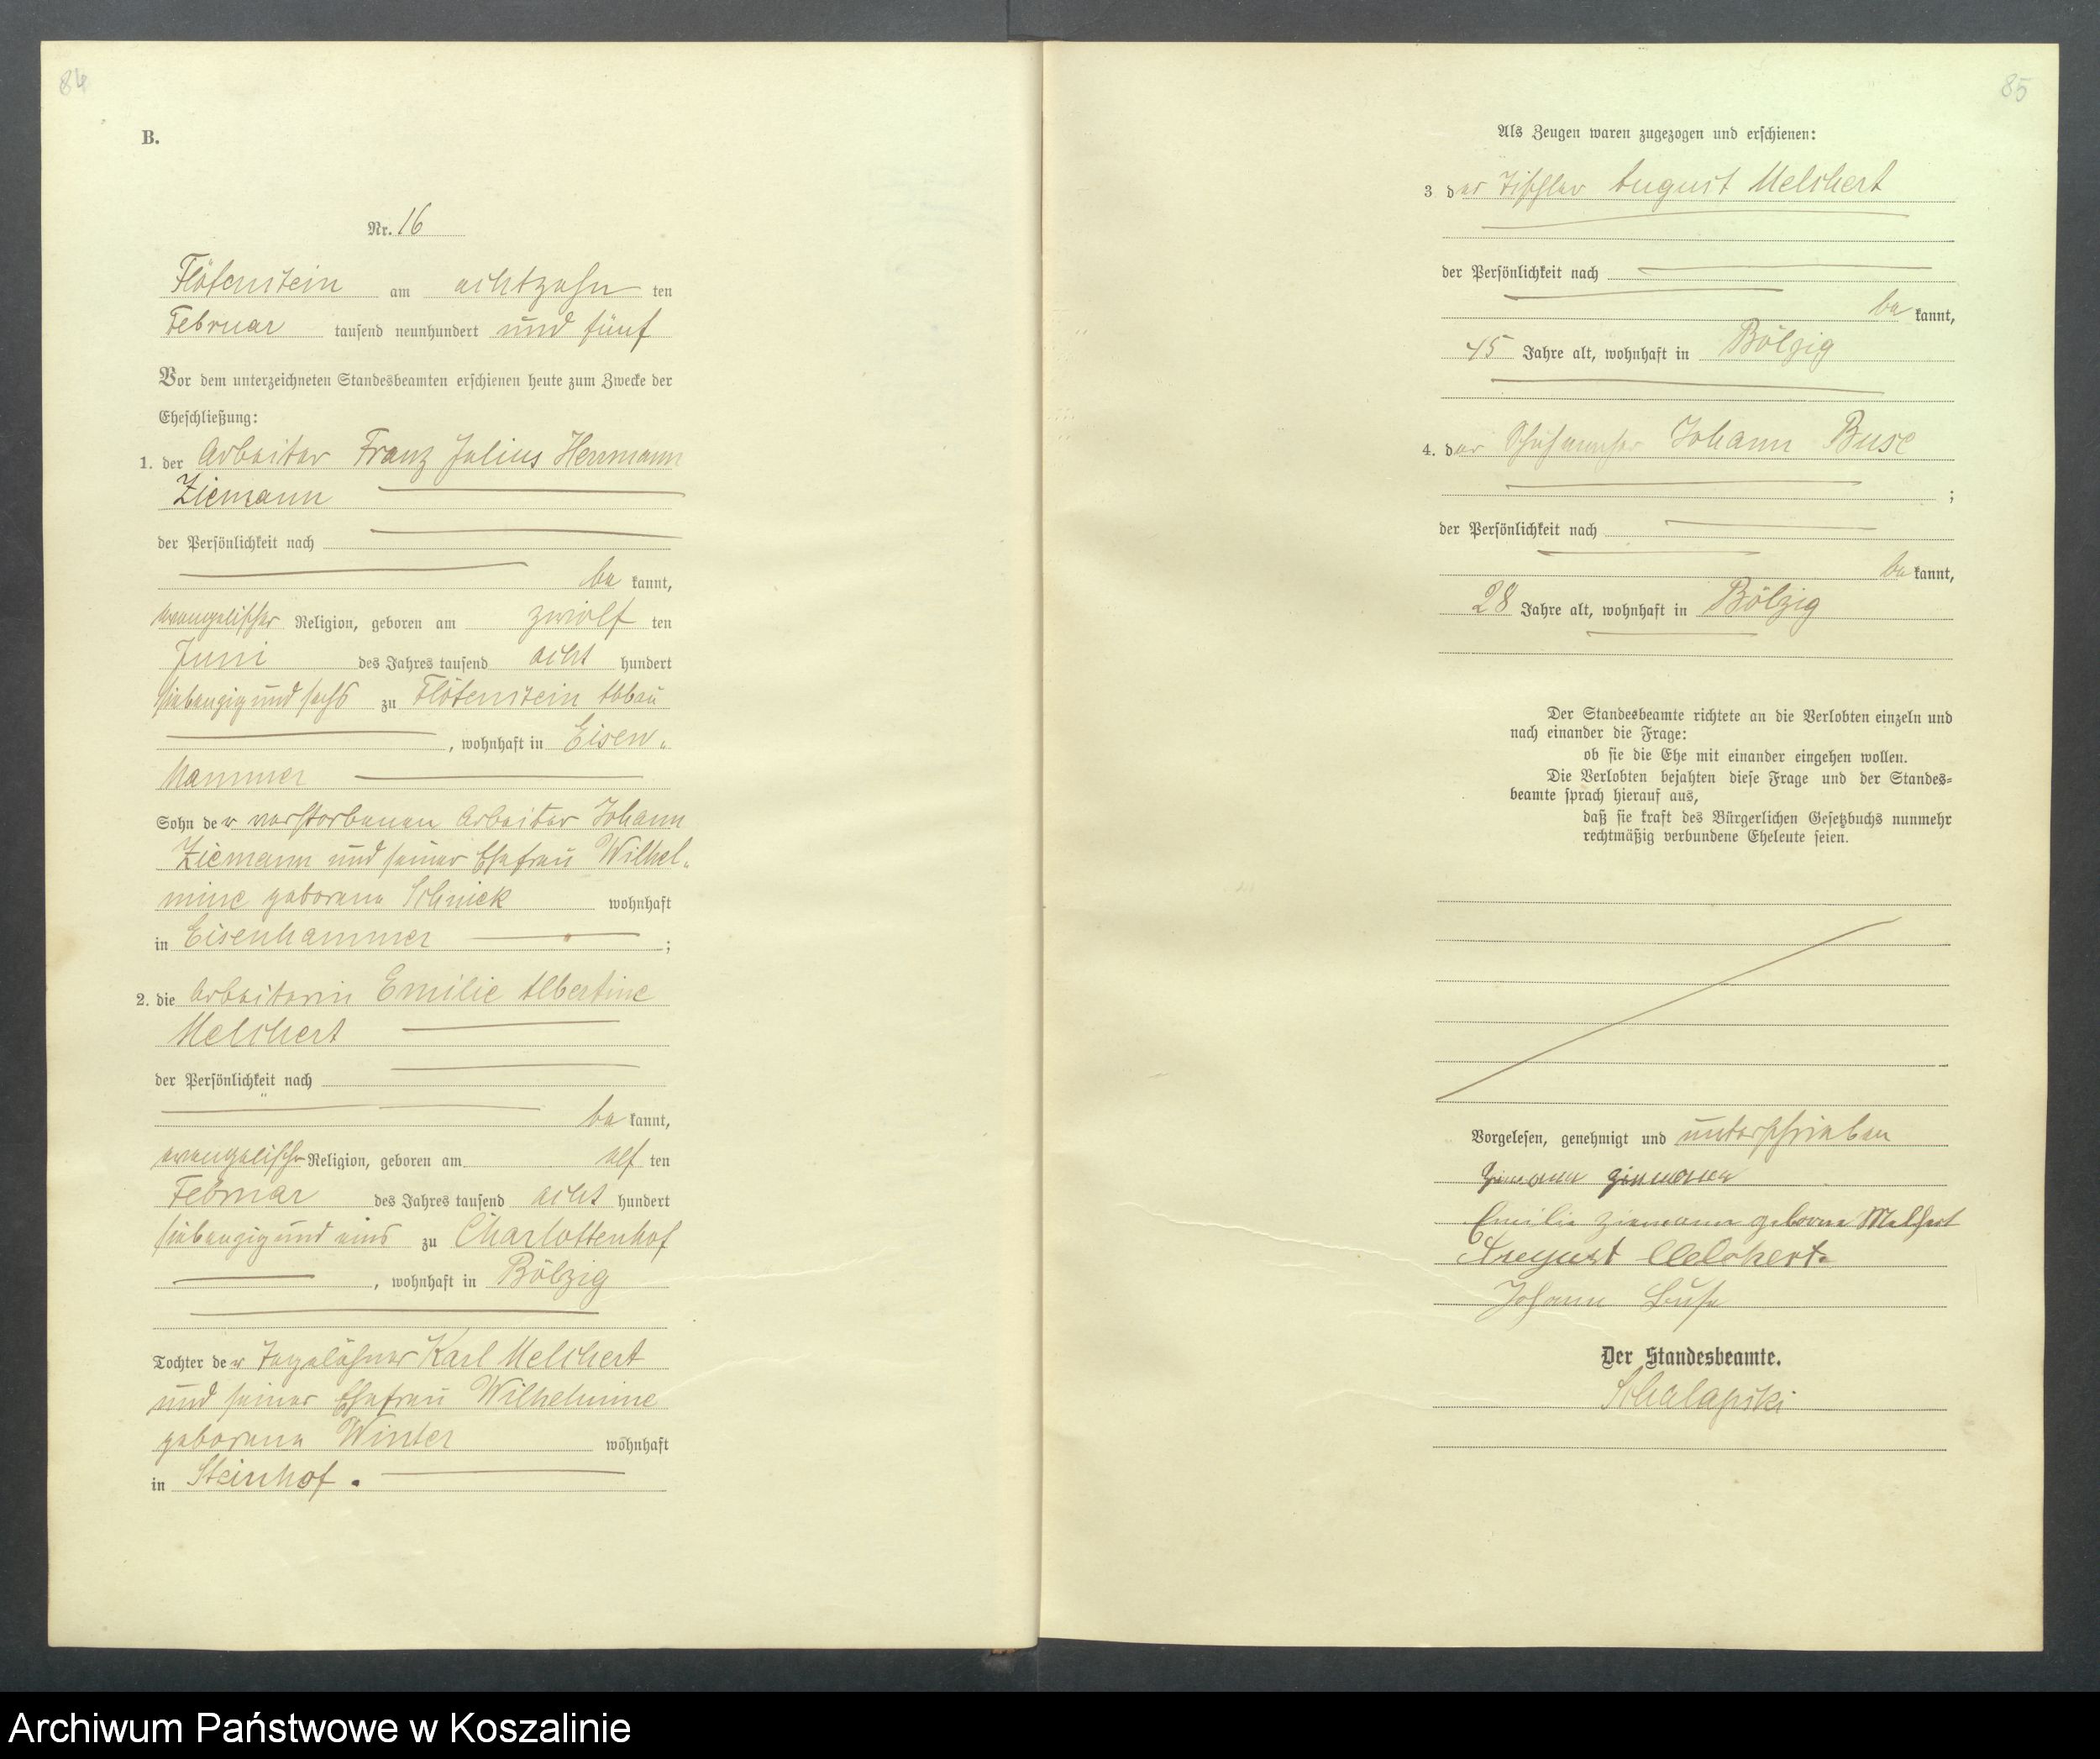 84
B.
Nr. 16
Flötenstein am achtzehn ten
Februar tausend neunhundert und fünf
Vor dem unterzeichneten Standesbeamten erschienen heute zum Zwecke der
Eheschließung:
1. der Arbeiter Franz Julius Hermann
Ziemann
der Persönlichkeit nach
be kannt,
evangelischer Religion, geboren am zwölf ten
Juni des Jahres tausend acht hundert
siebenzig und sechs zu Flötenstein Abbau
, wohnhaft in Eisen-
hammer
Sohn der verstorbenen Arbeiter Johann
Ziemann und seiner Ehefrau Wilhel-
mine geborene Schnick wohnhaft
in Eisenhammer ;
2. die Arbeiterin Emilie Albertine
Melchert
der Persönlichkeit nach
be kannt,
evangelischer Religion, geboren am elf ten
Februar des Jahres tausend acht hundert
siebenzig und eins zu Charlottenhof
, wohnhaft in Bölzig
Tochter der Tagelöhner Karl Melchert
und seiner Ehefrau Wilhelmine
geborene Winter wohnhaft
in Steinhof.
85
Als Zeugen waren zugezogen und erschienen:
3 der Tischler August Melchert
der Persönlichkeit nach
be kannt,
45 Jahre alt, wohnhaft in Bölzig
4. der Johann Buse
;
der Persönlichkeit nach
be kannt,
28 Jahre alt, wohnhaft in Bölzig
Der Standesbeamte richtete an die Verlobten einzeln und
nach einander die Frage:
ob sie die Ehe mit einander eingehen wollen.
Die Verlobten bejahten diese Frage und der Standes-
beamte sprach hierauf aus,
daß sie kraft des Bürgerlichen Gesetzbuchs nunmehr
rechtmäßig verbundene Eheleute seien.
Vorgelesen, genehmigt und unterschrieben
Ziemann
Emilie Ziemann geborne Melchert
August Melchert.
Johann Buse
Der Standesbeamte.
Schalapski
Archiwum Państwowe w Koszalinie